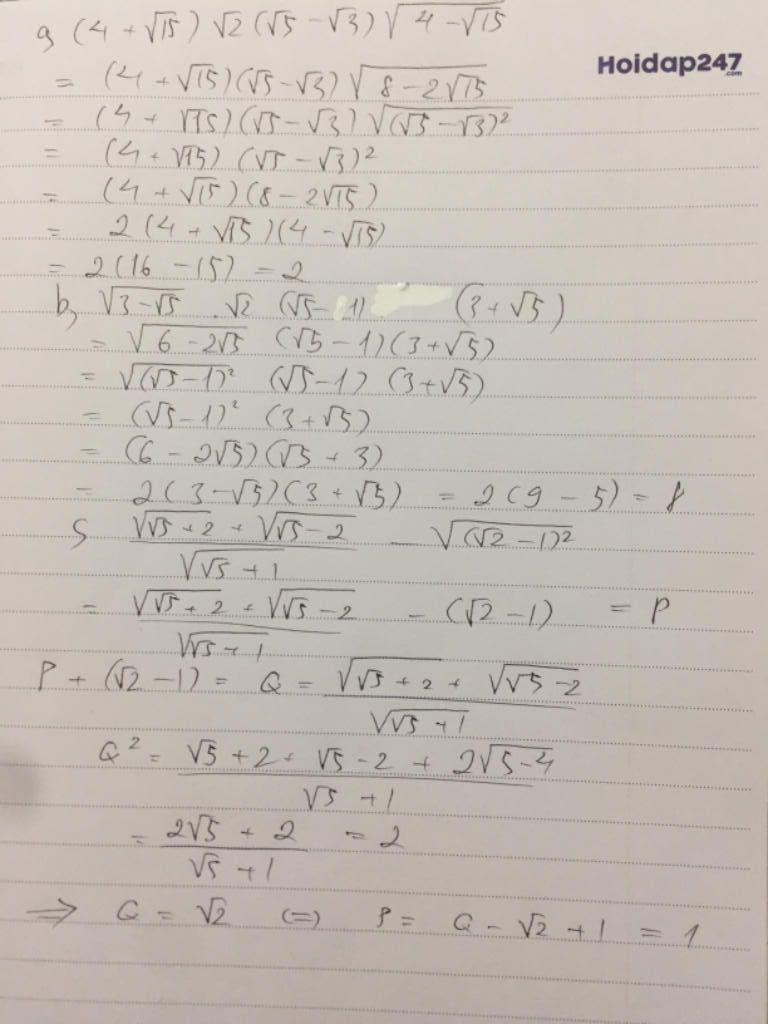 a, (4 + √15) √2 (√5 - √3) √(4 - √15)
Hoidap247.com
= (4 + √15)(√5 - √3) √(8 - 2√15)
= (4 + √15)(√5 - √3) √((√5 - √3)²)
= (4 + √15) (√5 - √3)²
= (4 + √15)(8 - 2√15)
= 2(4 + √15)(4 - √15)
= 2(16 - 15) = 2
b, √(3 - √5) . √2 (√5 - 1) (3 + √5)
= √(6 - 2√5) (√5 - 1)(3 + √5)
= √((√5 - 1)²) (√5 - 1) (3 + √5)
= (√5 - 1)² (3 + √5)
= (6 - 2√5)(√5 + 3)
= 2(3 - √5)(3 + √5) = 2(9 - 5) = 8
c, (√(√5 + 2) + √(√5 - 2)) / √(√5 + 1) - √((√2 - 1)²)
= (√(√5 + 2) + √(√5 - 2)) / √(√5 + 1) - (√2 - 1) = P
P + (√2 - 1) = Q = (√(√5 + 2) + √(√5 - 2)) / √(√5 + 1)
Q² = (√5 + 2 + √5 - 2 + 2√(5 - 4)) / (√5 + 1)
= (2√5 + 2) / (√5 + 1) = 2
=> Q = √2 (=) P = Q - √2 + 1 = 1